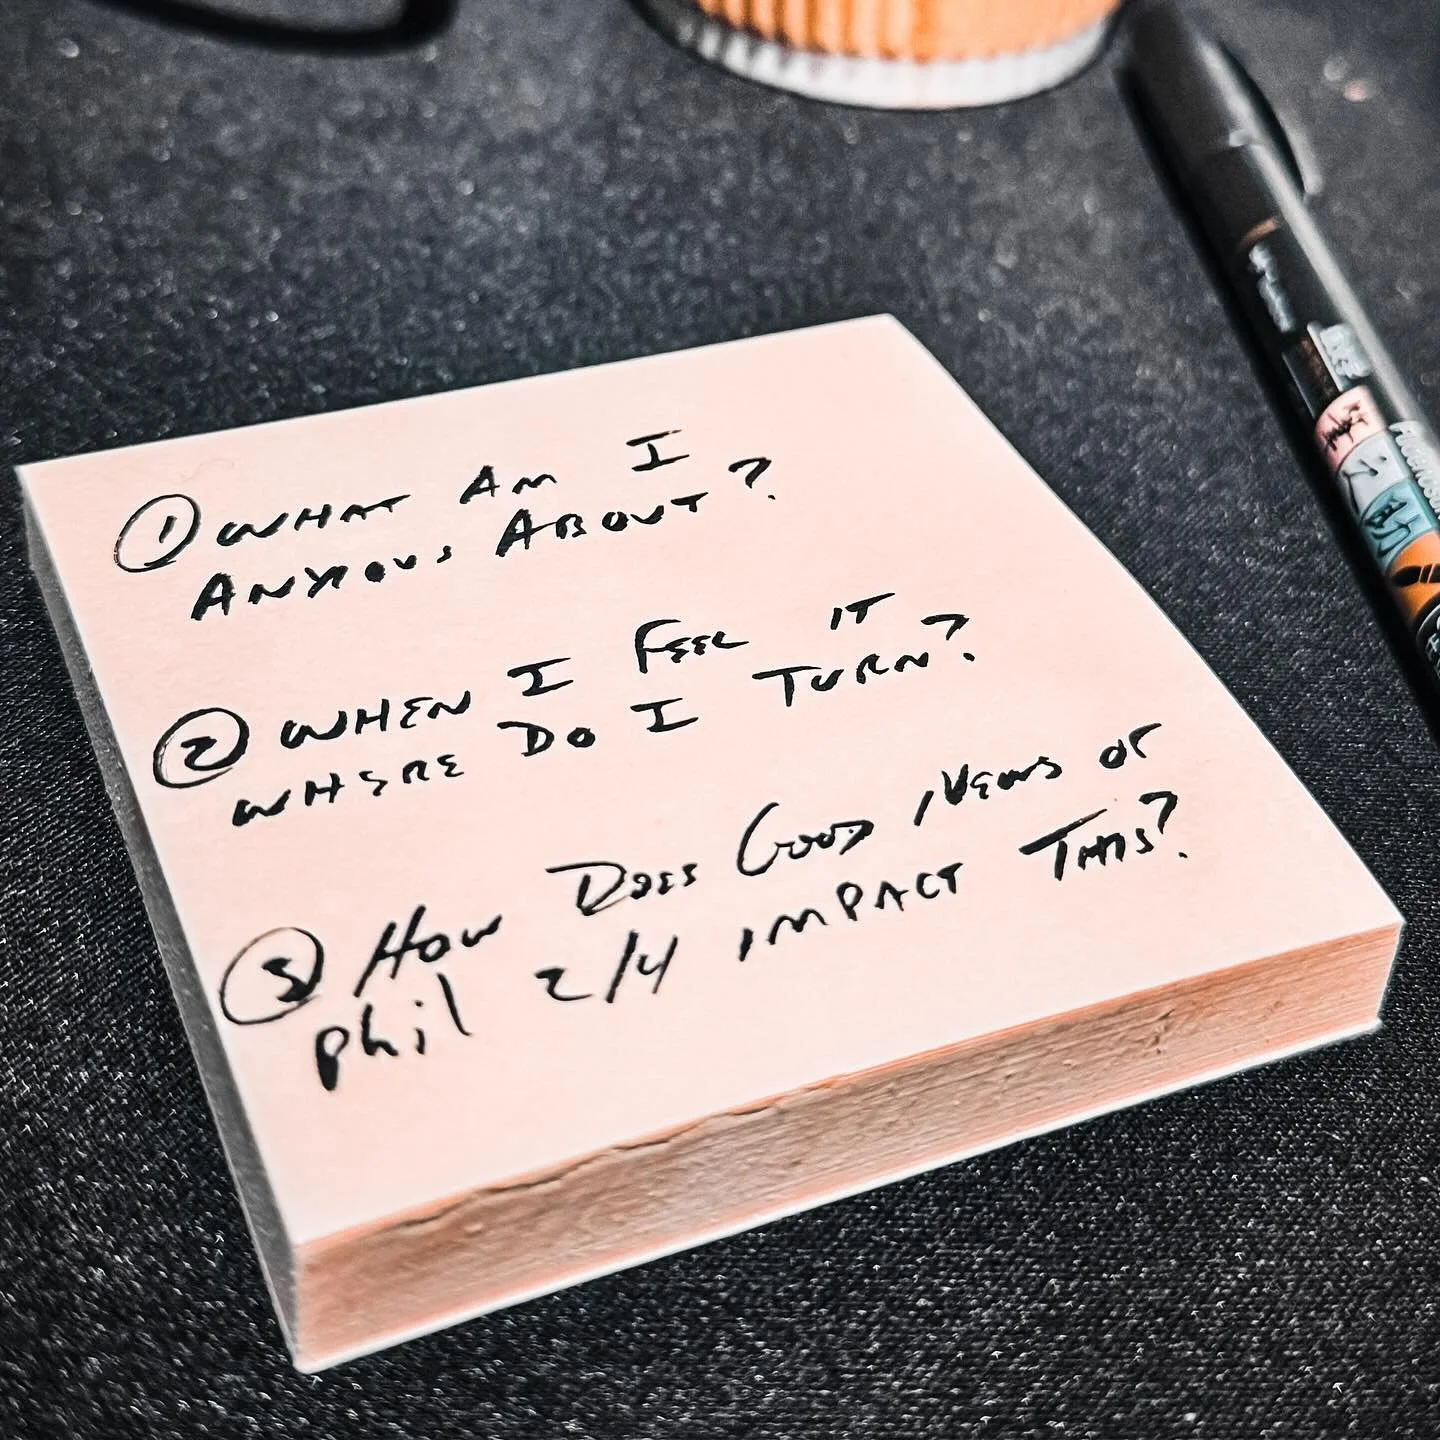 ① WHAT AM I
ANXIOUS ABOUT?
② WHEN I FEEL IT
WHERE DO I TURN?
③ HOW DOES GOOD NEWS OF
Phil 2/4 IMPACT THIS?